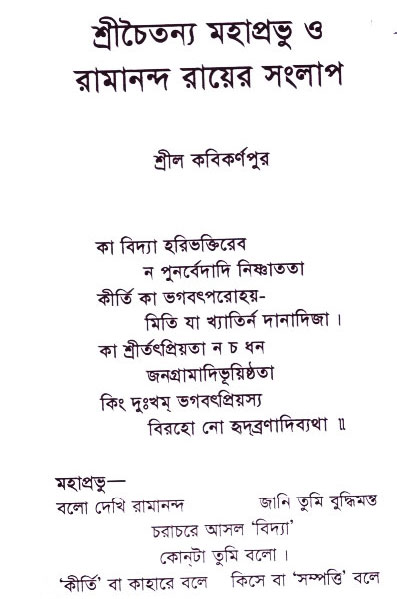 শ্রীচৈতন্য মহাপ্রভু ও
রামানন্দ রায়ের সংলাপ
শ্রীল কবিকর্ণপুর
কা বিদ্যা হরিভক্তিরেব
ন পুনর্বেদাদি নিষ্ণাততা
কীর্তি কা ভগবৎপরোহয়-
মিতি যা খ্যাতির্ন দানাদিজা ।
কা শ্রীর্তৎপ্রিয়তা ন চ ধন
জনগ্রামাদিভূয়িষ্ঠতা
কিং দুঃখম্ ভগবৎপ্রিয়স্য
বিরহো নো হৃদব্রণাদিব্যথা ॥
মহাপ্রভু—
বলো দেখি রামানন্দ জানি তুমি বুদ্ধিমন্ত
চরাচরে আসল ‘বিদ্যা’
কোন্‌টা তুমি বলো ।
‘কীর্তি’ বা কাহারে বলে কিসে বা ‘সম্পত্তি’ বলে